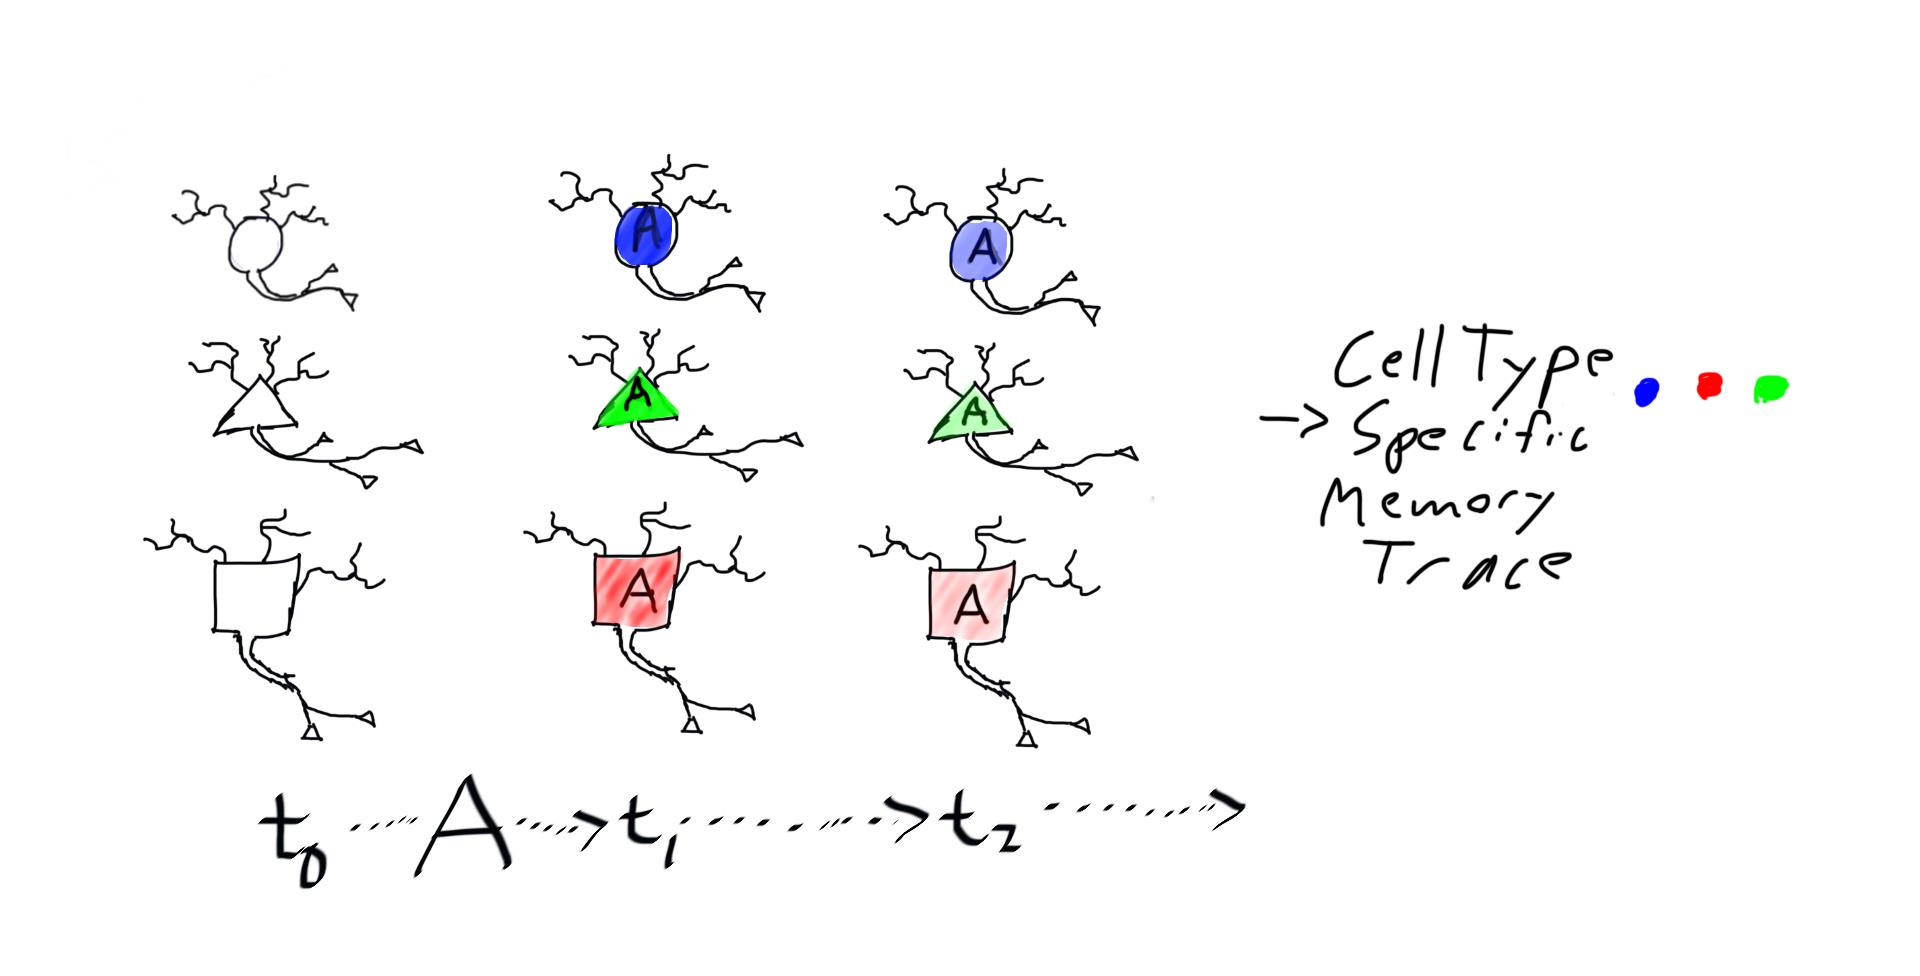 A A
A A
A A
Cell Type
→ Specific
Memory
Trace
t₀ ····· A ····> t₁ ········> t₂ ········>